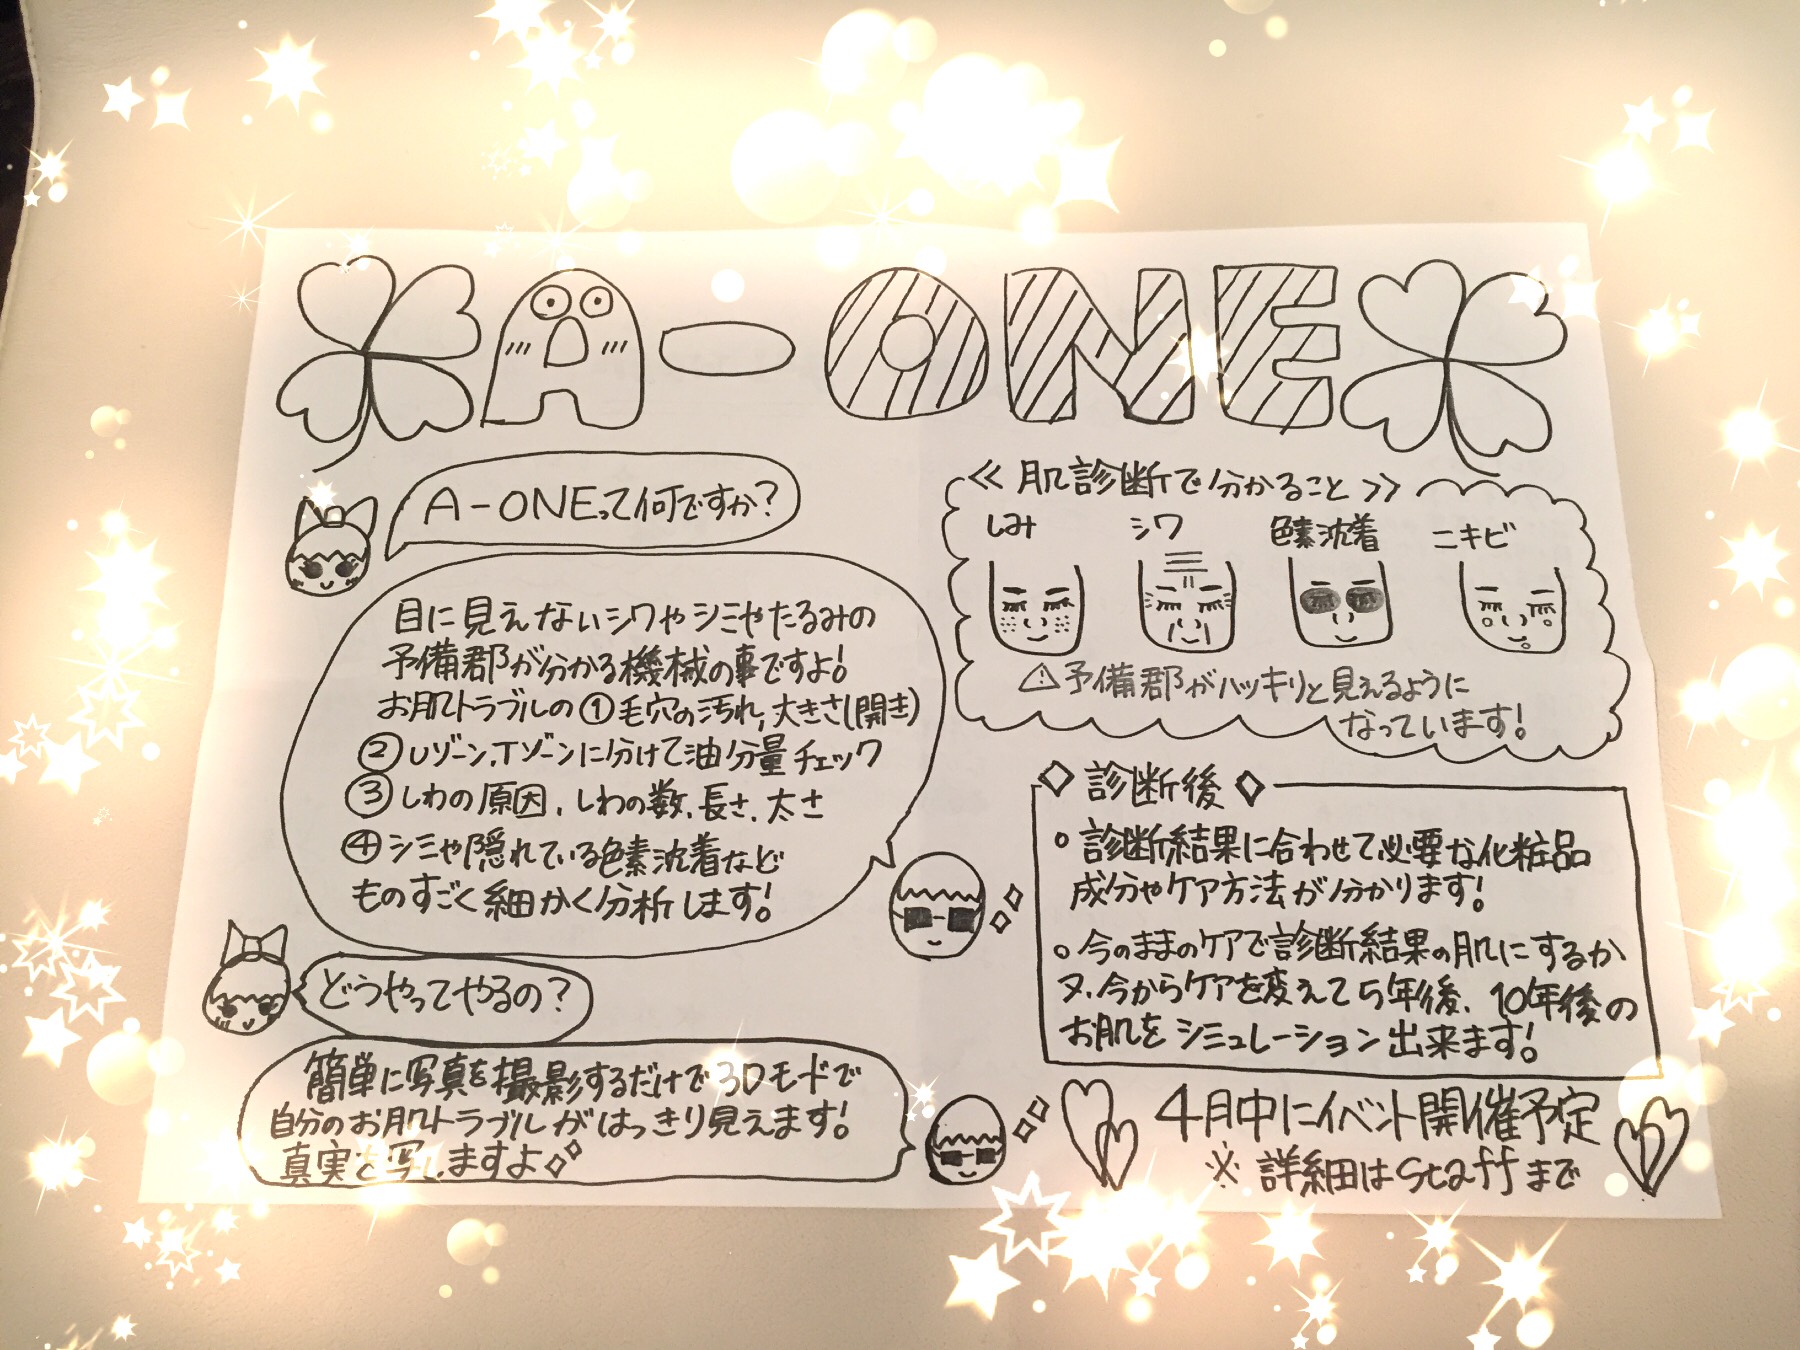 A-ONE
A-ONEって何ですか?
目に見えないシワやシミやたるみの
予備郡が分かる機械の事ですよ!
お肌トラブルの①毛穴の汚れ,大きさ(開き)
②Uゾーン,Tゾーンに分けて油分量チェック
③しわの原因、しわの数、長さ、太さ
④シミや隠れている色素沈着など
ものすごく細かく分析します!
どうやってやるの?
簡単に写真を撮影するだけで3Dモードで
自分のお肌トラブルがはっきり見えます!
真実を写しますよ
≪肌診断で分かること≫
しみ シワ 色素沈着 ニキビ
⚠予備郡がハッキリと見えるように
なっています!
◇診断後◇
○診断結果に合わせて必要な化粧品
成分やケア方法が分かります!
○今のままのケアで診断結果の肌にするか
又、今からケアを変えて5年後、10年後の
お肌をシミュレーション出来ます!
4月中にイベント開催予定
※詳細はstaffまで